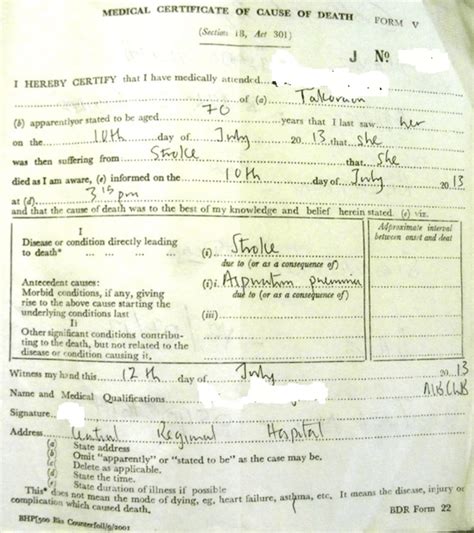 MEDICAL CERTIFICATE OF CAUSE OF DEATH FORM V
(Section 18, Act 301)
J No
I HEREBY CERTIFY that I have medically attended
of (a) Takorwon
(b) apparentlyor stated to be aged 70 years that I last saw her
on the 10th day of July 2013 that she
was then suffering from Stroke that she
died as I am aware, (c) informed on the 10th day of July 2013
at (d) 3 15 pm
and that the cause of death was to the best of my knowledge and belief herein stated. (e) viz.
I
Approximate interval
between onset and deat
Disease or condition directly leading
to death* (i) Stroke
due to (or as a consequence of)
Antecedent causes: (i) Aspiration pneumonia
Morbid conditions, if any, giving
rise to the above cause starting the
underlying conditions last
due to (or as a consequence of)
(iii)
II
Other significant conditions contribu-
ting to the death, but not related to the
disease or condition causing it,
Witness my hand this 12th day of July 2013
Name and Medical Qualifications MBChB
Signature
Address Central Regional Hospital
(a) State address
(b) Omit "apparently" or "stated to be" as the case may be.
(c) Delete as applicable.
(d) State the time.
(e) State duration of illness if possible
This* does not mean the mode of dying, eg, heart failure, asthma, etc. It means the disease, injury or
complication which caused death. BDR Form 22
BHP/500 Bks Counterfoil/9/2001